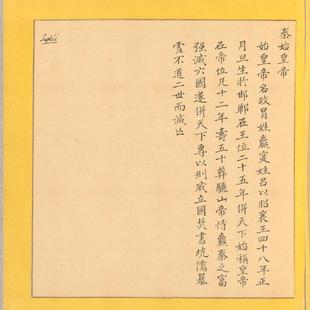 秦始皇帝
始皇帝名政冒姓嬴寔姓呂以昭襄王四十八年正
月旦生於邯鄲在王位二十五年併天下始稱皇帝
在帝位凡十二年壽五十葬驪山帝恃嬴秦之富
强滅六國遂併天下專以刑威立國焚書坑儒暴
虐不道二世而滅亡